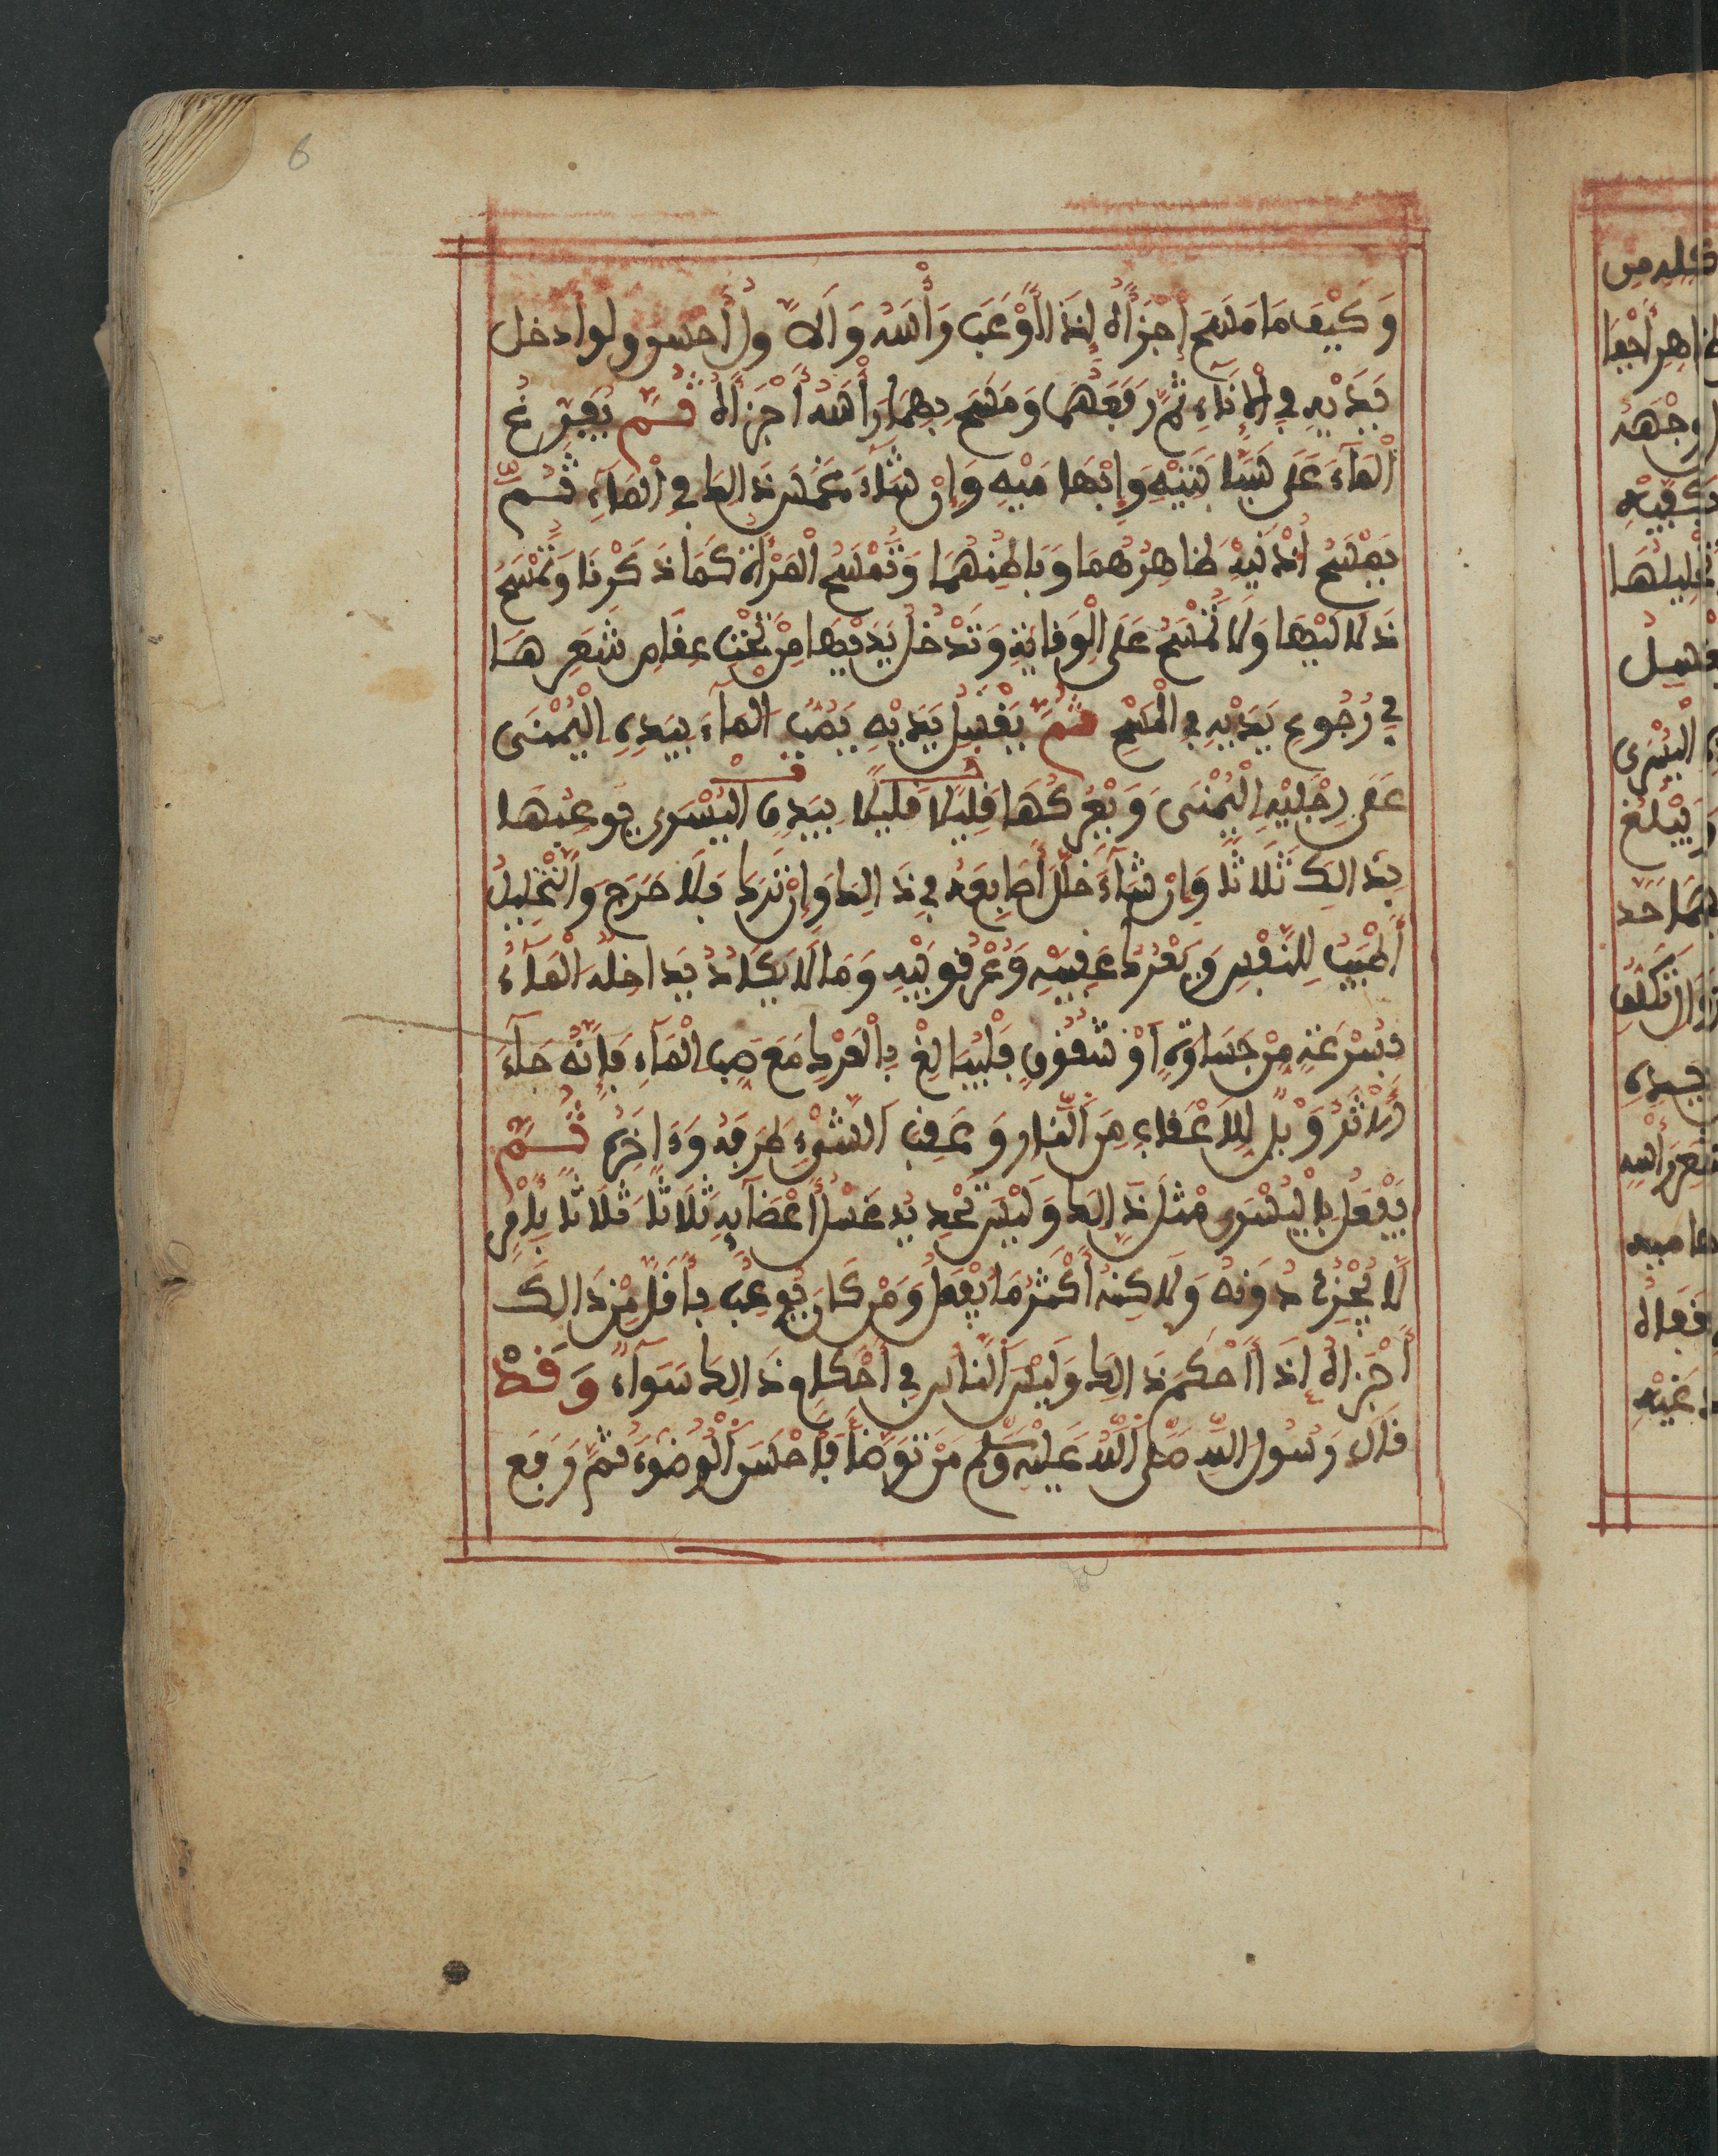 6
وَكَيْفَ مَا مَسَحَ أَجْزَأَهُ إِذَا أَوْعَبَ رَأْسَهُ وَالَاوَّلُ أَحْسَنُ ولو ادخل
يَدَيْهِ فِي الْإِنَاءِ ثُمَّ رَفَعَهُمَا وَمَسَحَ بِهِمَا رَأْسَهُ أَجْزَأَهُ ثُمَّ يُفْرِغُ
الْمَآءَ عَلَى سَبَّابَتَيْهِ وَإِبْهَامَيْهِ وَإِنْ شَآءَ غَمَسَ ذَالِكَ فِي الْمَآءِ ثُمَّ
يَمْسَحُ أُذْنَيْهِ ظَاهِرُهُمَا وَبَاطِنُهُمَا وَتَمْسَحُ الْمَرْأَةُ كَمَا ذَكَرْنَا وَتَمْسَحُ
دَلَالَيْهَا وَلَا تَمْسَحُ عَلَى الْوِقَايَةِ وَتُدْخِلُ يَدَيْهَا مِنْ تَحْتِ عِقَاصِ شَعَرِهَا
فِي رُجُوعِ يَدَيْهِ فِي الْمَسْحِ ثُمَّ يَغْسِلُ يَدَيْهِ يَصُبُّ الْمَآءَ بِيَدِهِ الْيُمْنَى
عَلَى رِجْلَيْهِ الْيُمْنَى وَيَعْرُكُهَا قَلِيلًا قَلِيلًا بِيَدِهِ الْيُسْرَى يُوعِبُهَا
بِذَالِكَ ثَلَاثًا وَإِنْ شَآءَ خَلَّلَ أَصَابِعَهُ فِي ذَالِكَ وَإِنْ تَرَكَ فَلَا حَرَجَ وَالتَّخْلِيلُ
أَطْيَبُ لِلنَّفْسِ وَيَعْرُكُ عَقِبَيْهِ وَعُرْقُوبَيْهِ وَمَا لَا يَكَادُ يَدَاخِلُهُ الْمَآءُ
بِسُرْعَةٍ مِنْ جَسَاوَةٍ أَوْ شُقُوقٍ فَلْيُبَالِغْ بِالْعَرْكِ مَعَ صَبِّ الْمَآءِ فَإِنَّهُ جَآءَ
الْأَثَرُ وَيْلٌ لِلْأَعْقَابِ مِنَ النَّارِ وَعَقِبُ الشَّيْءِ طَرَفُهُ وَءَاخِرُهُ ثُمَّ
يَفْعَلُ بِالْيُسْرَى مِثْلَ ذَالِكَ وَلَيْسَ تَحْدِيدُ غَسْلِ أَعْضَآئِهِ ثَلَاثًا ثَلَاثًا بِأَمْرٍ
لَا يُجْزِئُ دُونَهُ وَلَاكِنَّهُ أَكْثَرُ مَا يُفْعَلُ وَمَنْ كَانَ يُوعِبُ بِأَقَلَّ مِنْ ذَالِكَ
أَجْزَأَهُ إِذَا أَحْكَمَ ذَالِكَ وَلَيْسَ النَّاسِ فِي أَحْكَامِ ذَالِكَ سَوَآءً وَقَدْ
قَالَ رَسُولُ اللَّهِ صَلَّى اللَّهُ عَلَيْهِ وَسَلَّمَ مَنْ تَوَضَّأَ فَأَحْسَنَ الْوُضُوءَ ثُمَّ رَفَعَ